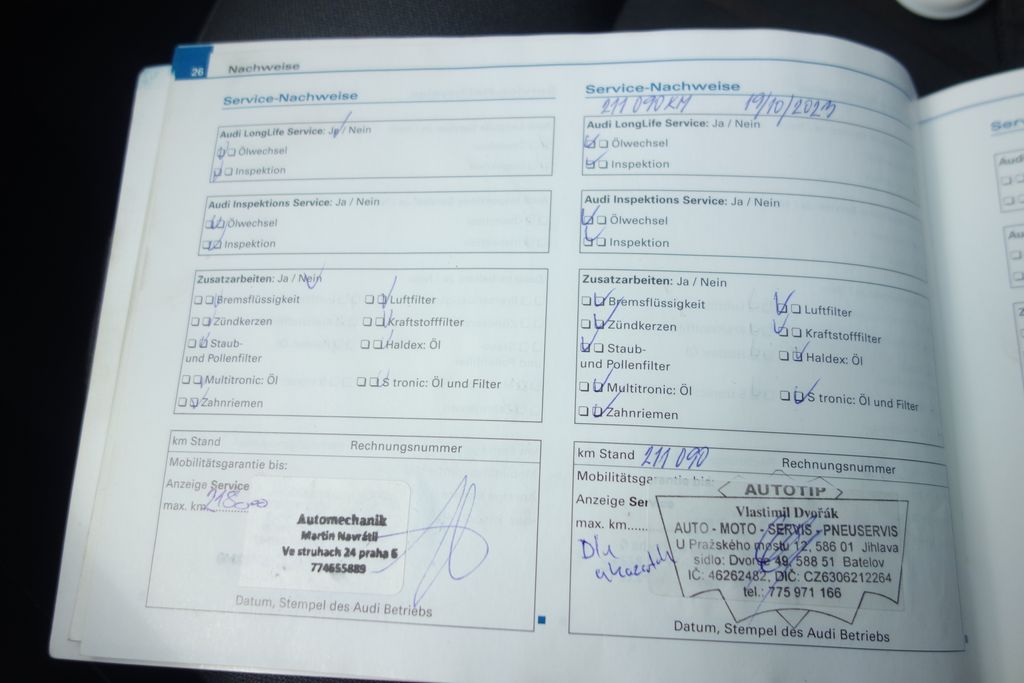 26 Nachweise
Service-Nachweise
Audi LongLife Service: Ja / Nein
Ölwechsel
Inspektion
Audi Inspektions Service: Ja / Nein
Ölwechsel
Inspektion
Zusatzarbeiten: Ja / Nein
Bremsflüssigkeit
Luftfilter
Zündkerzen
Kraftstofffilter
Staub-
und Pollenfilter
Haldex: Öl
Multitronic: Öl
S tronic: Öl und Filter
Zahnriemen
km Stand
Rechnungsnummer
Mobilitätsgarantie bis:
Anzeige Service
max. km
Automechanik
Martin Navrátil
Ve struhach 24 praha 6
774655889
Datum, Stempel des Audi Betriebs
Service-Nachweise
211 090 KM 19/10/2023
Audi LongLife Service: Ja / Nein
Ölwechsel
Inspektion
Audi Inspektions Service: Ja / Nein
Ölwechsel
Inspektion
Zusatzarbeiten: Ja / Nein
Bremsflüssigkeit
Luftfilter
Zündkerzen
Kraftstofffilter
Staub-
und Pollenfilter
Haldex: Öl
Multitronic: Öl
S tronic: Öl und Filter
Zahnriemen
km Stand 211 090
Rechnungsnummer
Mobilitätsgarantie bis:
Anzeige Ser
max. km......
Dle
ukazatele
AUTOTIP
Vlastimil Dvořák
AUTO - MOTO - SERVIS - PNEUSERVIS
U Pražského mostu 12, 586 01 Jihlava
sídlo: Dvorce 49, 588 51 Batelov
IČ: 46262482, DIČ: CZ6306212264
tel.: 775 971 166
Datum, Stempel des Audi Betriebs